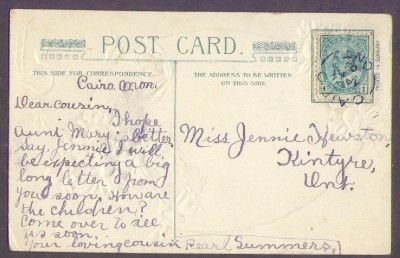 POST CARD.
THIS SIDE FOR CORRESPONDENCE.
THE ADDRESS TO BE WRITTEN
ON THIS SIDE
Cairo Mon.
Dear cousin,
I hope
Aunt Mary is better
Say, Jennie I will
be expecting a big
long letter from
you soon. How are
the children?
Come over to see
us soon.
Your loving cousin Pearl Summers,
Miss Jennie Hewston,
Kintyre,
Ont.
CAIRO
ONT